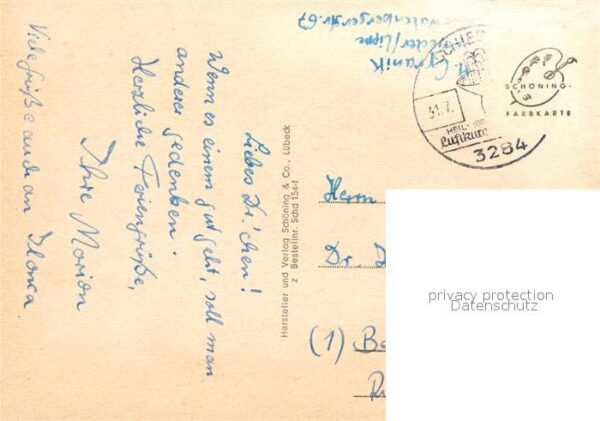 Liebes Dr.'chen!
Wenn es einem gut geht, soll man
anderer gedenken.
Herzliche Feriengrüße,
Ihre Marion
Viele Grüße auch an Ilona
Hersteller und Verlag Schöning & Co., Lübeck
z Bestellnr. Schd 154-f
/Lippe
str. 67
31.7.
HEIL-
Luftkuro
3284
SCHÖNING
FARBKARTE
Herrn
Dr.
(1) Be
privacy protection
Datenschutz